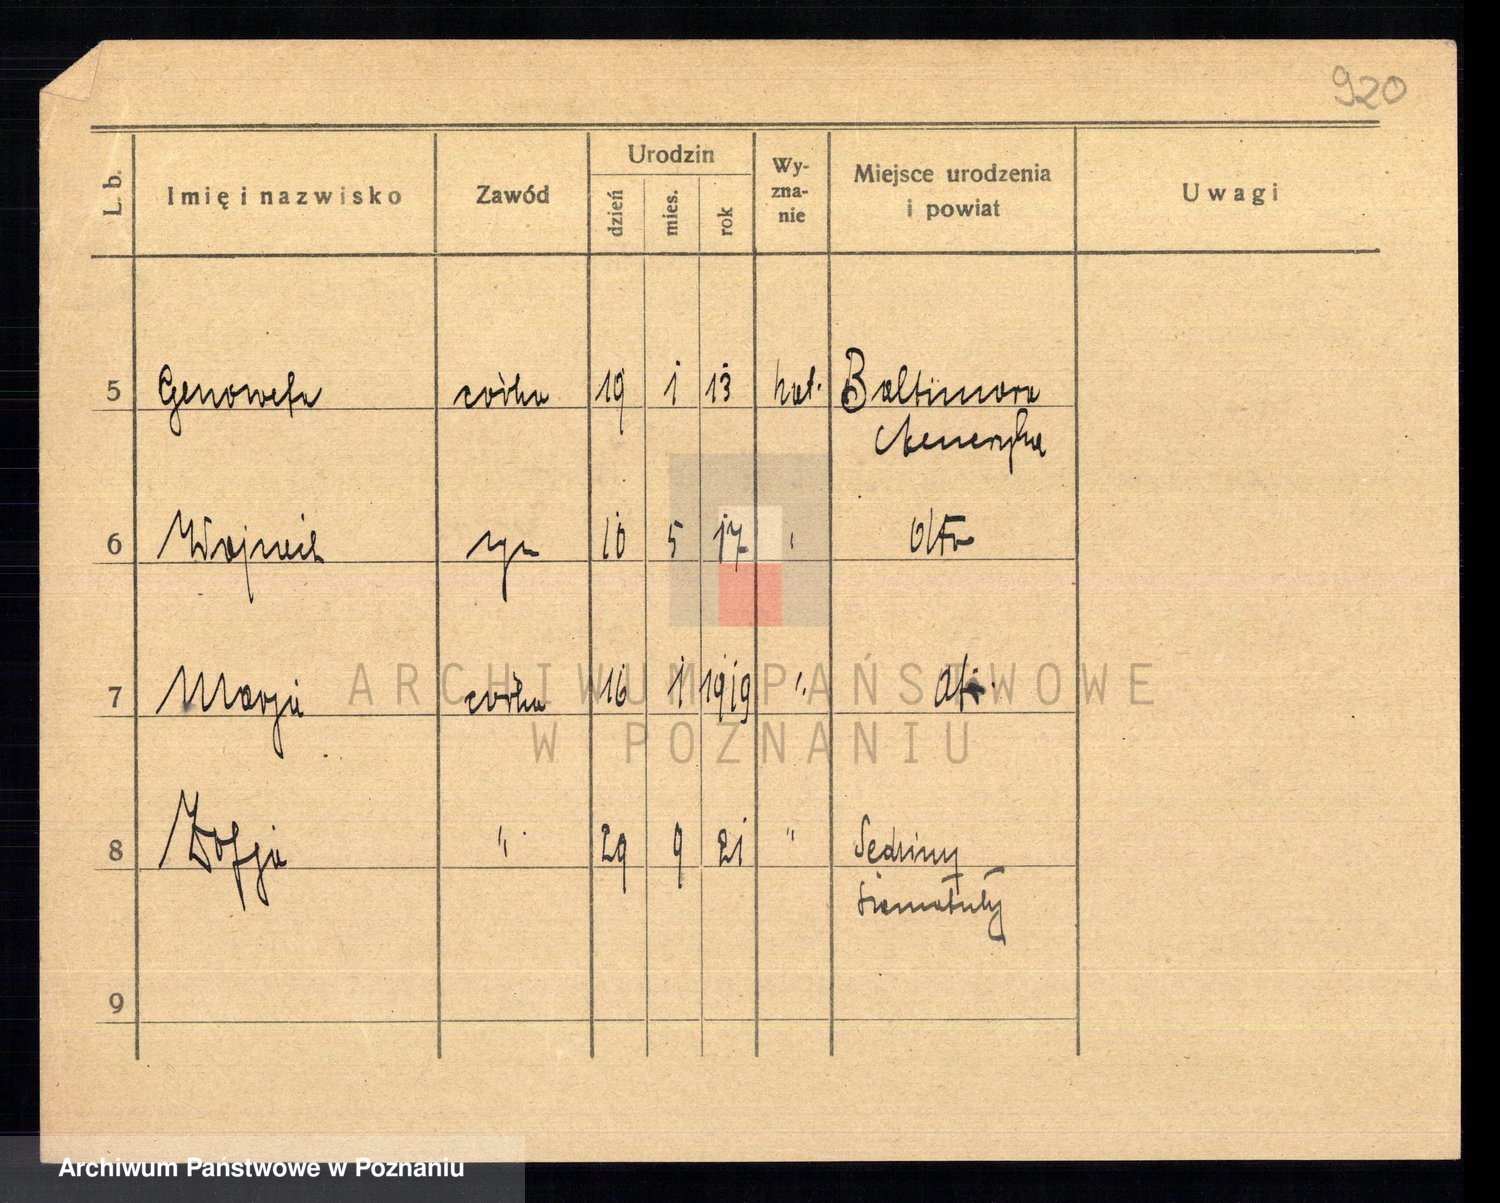 920
L. b.
Imię i nazwisko
Zawód
Urodzin
dzień
mies.
rok
Wy-
zna-
nie
Miejsce urodzenia
i powiat
Uwagi
5 Genowefa córka 19 1 13 kat. Baltimora
Ameryka
6 Wojciech syn 10 5 17 "
7 Marja córka 16 1 1919 "
8 Zofja " 29 9 21 " Sędziny
Szamotuły
9
ARCHIWUM PAŃSTWOWE
W POZNANIU
Archiwum Państwowe w Poznaniu